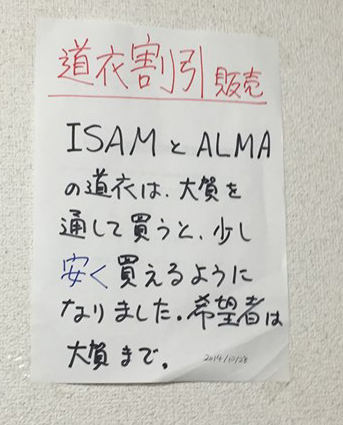 道衣割引販売
ISAMとALMA
の道衣は、大賀を
通して買うと、少し
安く買えるように
なりました。希望者は
大賀まで。
2014/10/28